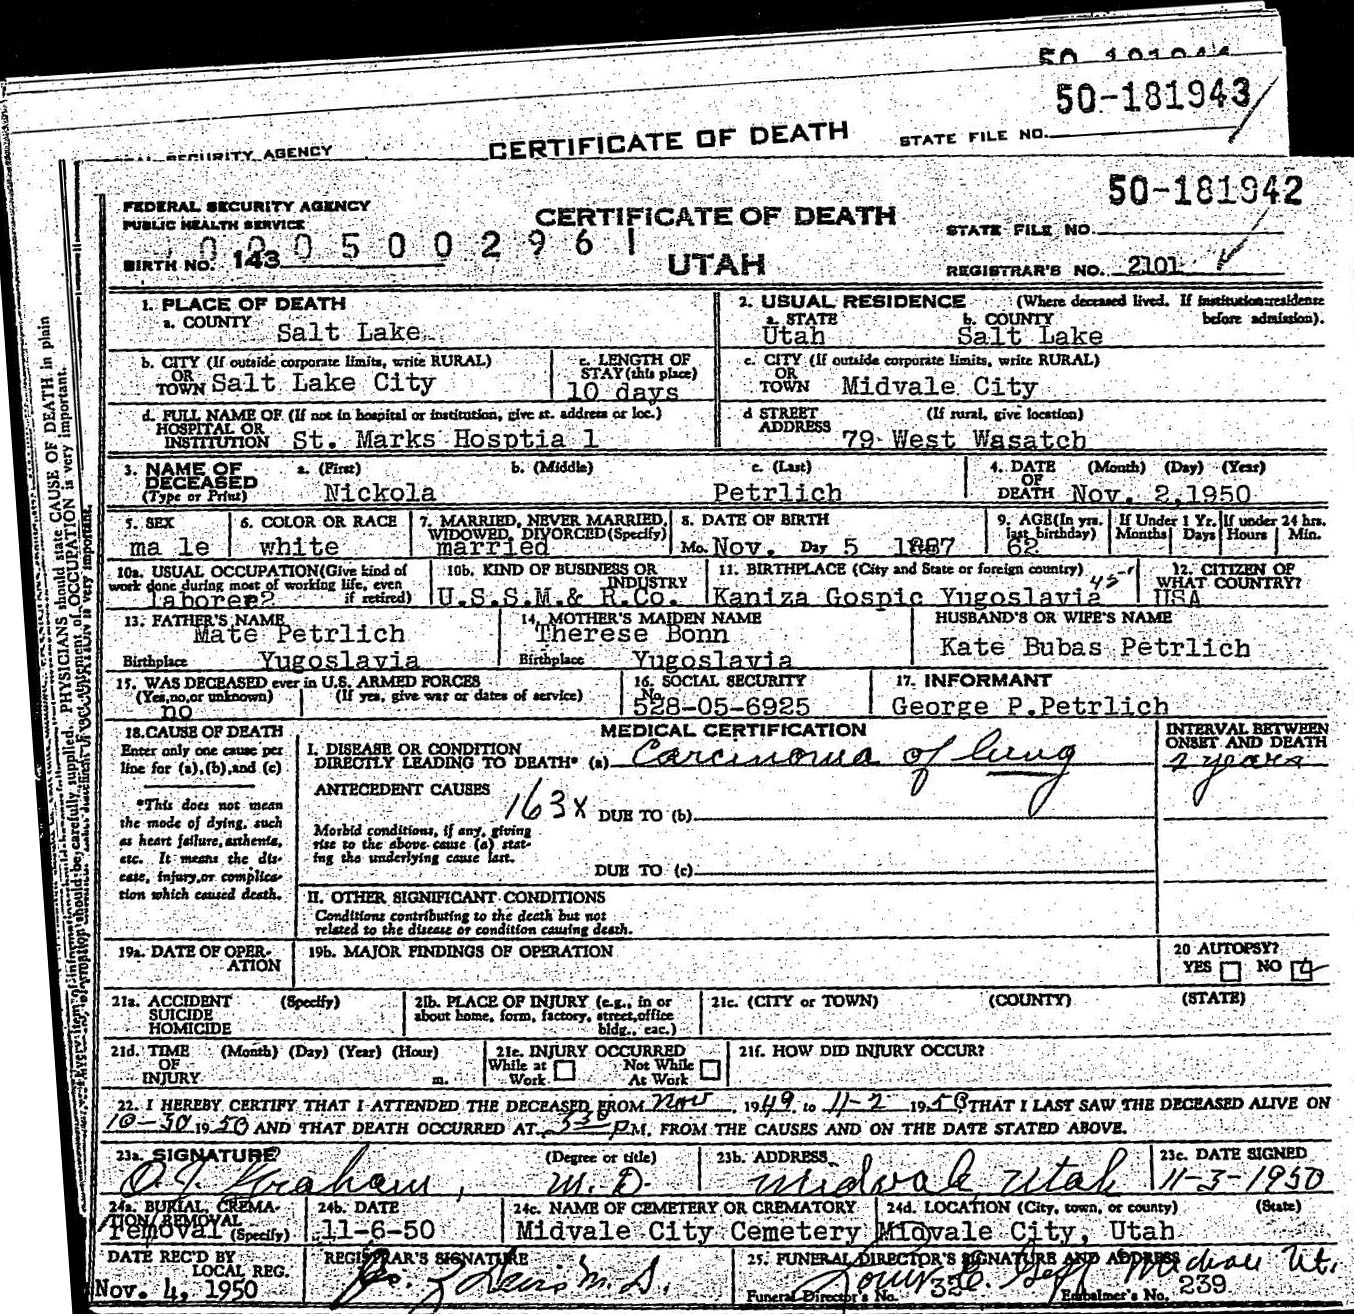 50-181944
50-181943
CERTIFICATE OF DEATH
STATE FILE NO.
SECURITY AGENCY
50-181942
FEDERAL SECURITY AGENCY
PUBLIC HEALTH SERVICE
CERTIFICATE OF DEATH
STATE FILE NO.
0005002961
BIRTH NO. 143
UTAH
REGISTRAR'S NO. 2101
1. PLACE OF DEATH
a. COUNTY Salt Lake
2. USUAL RESIDENCE (Where deceased lived. If institution: residence before admission).
a. STATE Utah
b. COUNTY Salt Lake
b. CITY (If outside corporate limits, write RURAL)
OR
TOWN Salt Lake City
c. LENGTH OF
STAY (this place)
10 days
c. CITY (If outside corporate limits, write RURAL)
OR
TOWN Midvale City
d. FULL NAME OF (If not in hospital or institution, give st. address or loc.)
HOSPITAL OR
INSTITUTION St. Marks Hosptia l
d STREET (If rural, give location)
ADDRESS 79 West Wasatch
3. NAME OF
DECEASED
(Type or Print)
a. (First) Nickola
b. (Middle)
c. (Last) Petrlich
4. DATE (Month) (Day) (Year)
OF
DEATH Nov. 2,1950
5. SEX
ma le
6. COLOR OR RACE
white
7. MARRIED, NEVER MARRIED,
WIDOWED, DIVORCED (Specify)
married
8. DATE OF BIRTH
Mo. Nov. Day 5 1887
9. AGE (In yrs.
last birthday)
62
If Under 1 Yr.
Months Days
If under 24 hrs.
Hours Min.
10a. USUAL OCCUPATION (Give kind of
work done during most of working life, even
if retired)
laborer
10b. KIND OF BUSINESS OR
INDUSTRY
U.S.S.M.& R.Co.
11. BIRTHPLACE (City and State or foreign country)
Kaniza Gospic Yugoslavia
12. CITIZEN OF
WHAT COUNTRY?
USA
13. FATHER'S NAME
Mate Petrlich
Birthplace Yugoslavia
14. MOTHER'S MAIDEN NAME
Therese Bonn
Birthplace Yugoslavia
HUSBAND'S OR WIFE'S NAME
Kate Bubas Petrlich
15. WAS DECEASED ever in U.S. ARMED FORCES
(Yes, no, or unknown) (If yes, give war or dates of service)
no
16. SOCIAL SECURITY
No.
528-05-6925
17. INFORMANT
George P.Petrlich
18. CAUSE OF DEATH
Enter only one cause per
line for (a), (b), and (c)
*This does not mean
the mode of dying, such
as heart failure, asthenia,
etc. It means the dis-
ease, injury, or complica-
tion which caused death.
MEDICAL CERTIFICATION
INTERVAL BETWEEN
ONSET AND DEATH
I. DISEASE OR CONDITION
DIRECTLY LEADING TO DEATH* (a) Carcinoma of lung
2 years
ANTECEDENT CAUSES
163x
DUE TO (b)
Morbid conditions, if any, giving
rise to the above cause (a) stat-
ing the underlying cause last.
DUE TO (c)
II. OTHER SIGNIFICANT CONDITIONS
Conditions contributing to the death but not
related to the disease or condition causing death.
19a. DATE OF OPER-
ATION
19b. MAJOR FINDINGS OF OPERATION
20 AUTOPSY?
YES NO
21a. ACCIDENT (Specify)
SUICIDE
HOMICIDE
21b. PLACE OF INJURY (e.g., in or
about home, form, factory, street, office
bldg., eac.)
21c. (CITY or TOWN) (COUNTY) (STATE)
21d. TIME (Month) (Day) (Year) (Hour)
OF
INJURY m.
21e. INJURY OCCURRED
While at Work
Not While At Work
21f. HOW DID INJURY OCCUR?
22. I HEREBY CERTIFY THAT I ATTENDED THE DECEASED FROM Nov, 1949, to 11-2 1950 THAT I LAST SAW THE DECEASED ALIVE ON
10-30 1950 AND THAT DEATH OCCURRED AT 530 PM. FROM THE CAUSES AND ON THE DATE STATED ABOVE.
23a. SIGNATURE (Degree or title)
M.D.
23b. ADDRESS
Midvale, Utah
23c. DATE SIGNED
11-3-1950
24a. BURIAL, CREMA-
TION, REMOVAL (Specify)
removal
24b. DATE
11-6-50
24c. NAME OF CEMETERY OR CREMATORY
Midvale City Cemetery
24d. LOCATION (City, town, or county) (State)
Midvale City, Utah
DATE REC'D BY
LOCAL REG.
Nov. 4, 1950
REGISTRAR'S SIGNATURE
M.D.
25. FUNERAL DIRECTOR'S SIGNATURE AND ADDRESS
Midvale Ut.
Funeral Director's No. 32
Embalmer's No. 239
PHYSICIANS should state CAUSE OF DEATH in plain
OCCUPATION is very important.